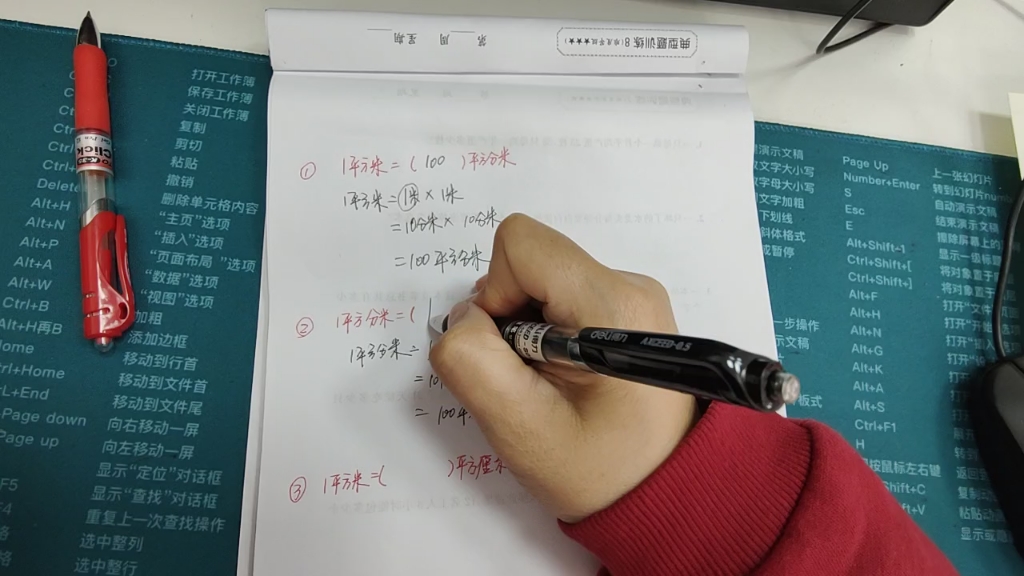 第 周 星期
典型题训练8
① 1平方米=( 100 )平方分米
1平方米=1米×1米
=10分米×10分米
=100平方分米
② 1平方分米=( 1
1平方分米=
=10
=100平
③ 1平方米=( )平方厘米
Click
deli
AXCEED-0.5
打开工作簿
保存工作簿
关闭工作簿
复制
剪切
粘贴
Delete 撤销
Alt+H 删除单元格内容
Alt+N "主页"选项
Alt+P "插入"选项
Alt+A "页面布局"选项
Alt+W "数据"选项
Ctrl+B "视图"选项
Alt+H再B 加粗
Home 添加边框
Ctrl+Home 移动到行首
Ctrl+End 移动到文件首
Page down 移动到文件尾
Page up 向右移动一屏
向左移动一屏
F5 显示"定位"对话框
显示"查找"对话框
F4 重复上一次查找操作
选中整列
选中整行
演示文稿 Page Up 上一张幻灯片
文字大小写 Number+Enter 转到幻灯片num
字母大小写 S 自动演示文稿
文字加粗 Esc 结束演示文稿
下划线 E 擦除屏幕上的
斜体格式 Alt+Shift-1 显示一级标题
或暂停 Ctrl+Shift+[
Ctrl+Shift+]
Alt+F
Alt+H
一步操作 Alt+N
示文稿 Alt+G
Alt+K
Alt+A
板式 Alt+S
Ctrl+F1
H
按鼠标左右键
Shift+C
Shift+V